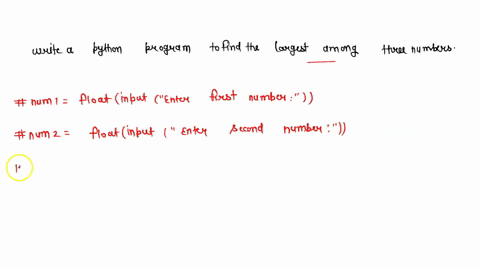 write a python program to find the largest among three numbers.
# num1 = float(input ("Enter first number:"))
# num2 = float(input (" Enter second number:"))